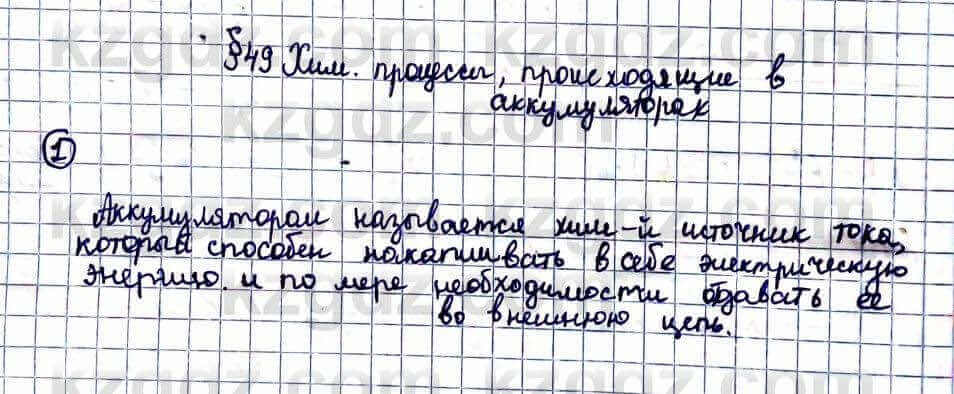 §49 Хим. процессы, происходящие в
аккумуляторах
1
Аккумулятором называется хим-й источник тока,
который способен накапливать в себе электрическую
энергию. и по мере необходимости отдавать её
во внешнюю цепь.
kzgdz.com